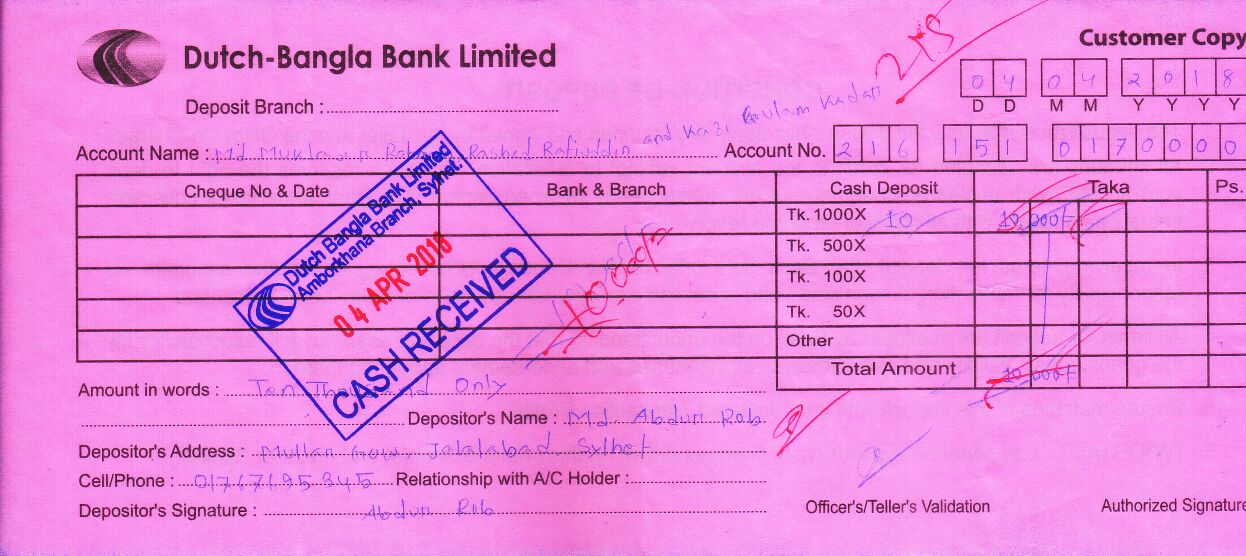 Dutch-Bangla Bank Limited
Customer Copy
218
04 04 2018
D D M M Y Y Y Y
Deposit Branch :
Account Name : Md Rashed Rafiuddin and Kazi Kadar
Account No. 216 151 0170000
Cheque No & Date Bank & Branch Cash Deposit Taka Ps.
Tk. 1000X 10 10,000/-
Tk. 500X
Tk. 100X
Tk. 50X
Other
Total Amount 10,000/-
Dutch Bangla Bank Limited
Amborkhana Branch, Sylhet.
04 APR 2018
CASH RECEIVED
Amount in words : Ten Thousand Only
Depositor's Name : Md Abdur Rob
Depositor's Address : Jalalabad, Sylhet
Cell/Phone : 01767695845 Relationship with A/C Holder :
Depositor's Signature : Abdur Rob
Officer's/Teller's Validation Authorized Signature